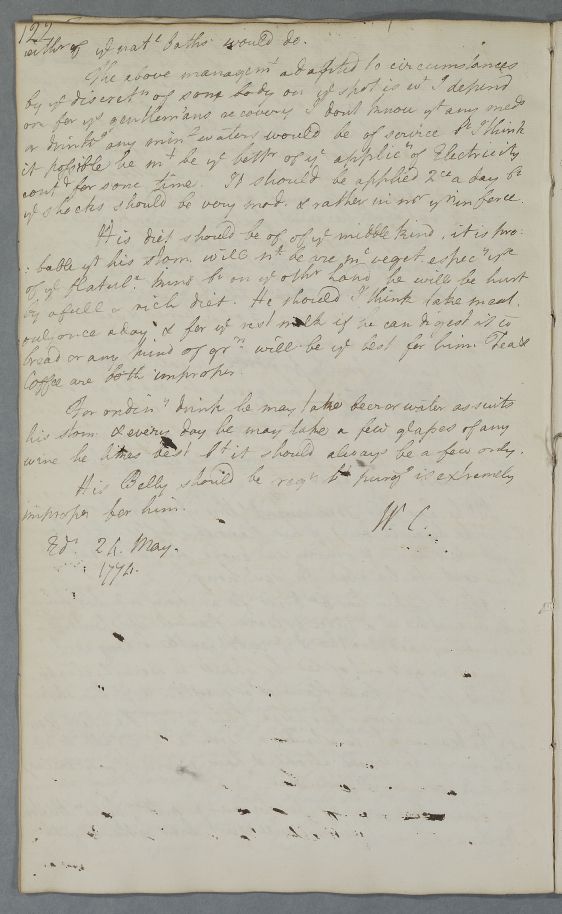 122
either of yᵉ natˡ baths would do.
The above managemᵗ adapted to circumstances
by yᵉ discretⁿ of some body on yᵉ spot is wᵗ I depend
on for yᵉ gentleman's recovery I dont know yᵗ any meds
or drinkᵍ any minˡ waters would be of service bᵗ I think
it possible he mᵗ be yᵉ bettʳ of yᵉ applicⁿ of Electricity
contᵈ for some time. It should be applied 2ᶜᵉ a day bᵗ
yᵉ shocks should be very mod. & rather in nʳ yⁿ in force.
His diet should be of of yᵉ middle kind, it is pro:
: bable yᵗ his stom. will nᵗ be mᶜ veget. especˡʸ
of yᵉ flatulᵗ kind bᵗ on yᵉ othʳ hand he will be hurt
by a full & rich diet. He should I think take meat
only once a day & for yᵉ rest milk if he can digest it wᵗ
bread or any kind of grⁿ will be yᵉ best for him. Tea &
Coffee are both improper.
For ordinʸ drink he may take beer or water as suits
his stom. & every day he may take a few glasses of any
wine he likes best bᵗ it should always be a few only.
His Belly should be regʳ bᵗ purgᵍ is extremely
improper for him.
W. C.
Edʳ 24. May.
1774.